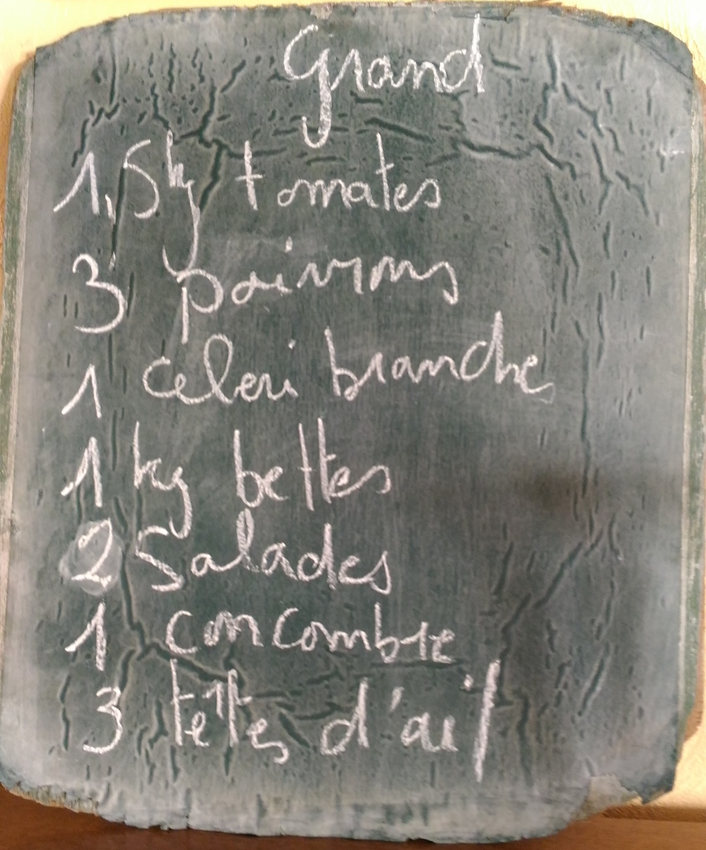 Grand
1,5kg tomates
3 poivrons
1 celeri branche
1 kg bettes
2 Salades
1 concombre
3 têtes d'ail